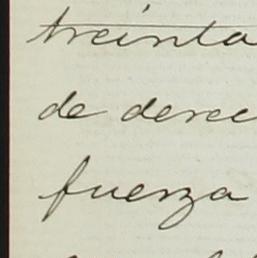 treinta
de derec
fuerza